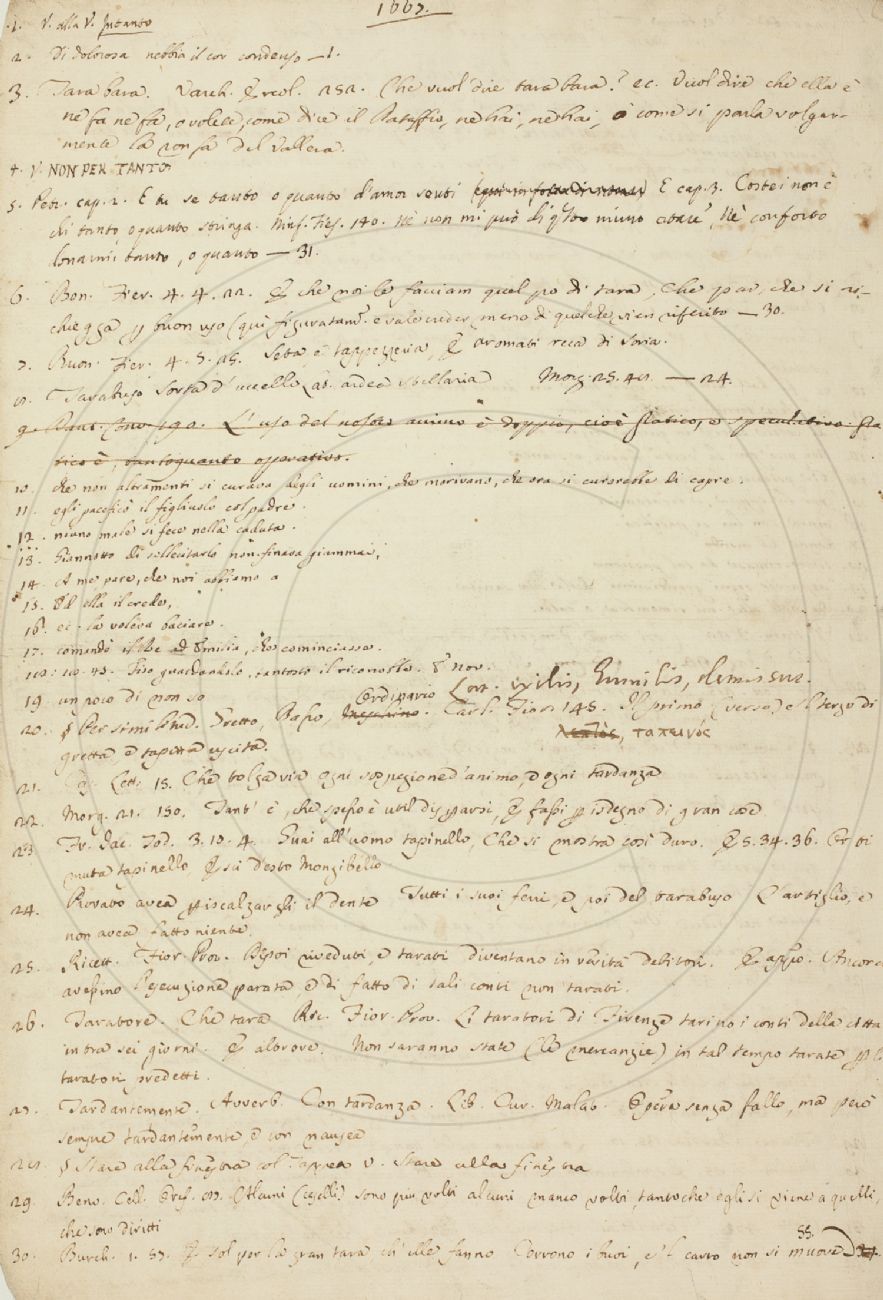 1667.
1. V. alla V. Intanto
2. Di dolorosa nebbia il cor condenso — 1.
3. Tara bara. Varch. Ercol. 252. Che vuol dire tara bara? ec. Vuol dire che ella è
nè fa nè fa, o volete, come dice il Pataffio, nè hai, nè hai, o come si parla volgar-
mente la del Vallera.
4. V. NON PER TANTO
5. Petr. cap. 2. E tu se tanto o quanto d'amor senti E cap. 3. Costei non è
chi tanto, o quanto stringa. Ninf. Fies. 140. Nè non mi può di qsto niuno atare, Nè conforto
donarmi tanto, o quanto — 31.
6. Bon. Fier. 4. 4. 22. E che noi le facciam quel po di tara, Che par, che si ri-
chiegga p buon uso (qui figuratam. e vale creder meno di quelche vien riferito — 30.
7. Buon. Fier. 4. 5. 25. Seta, e tappezzeria, E aromati reca di Soria.
8. Tarabuso Sorta d'uccello Lat. ardea stellaria Morg. 25. — 24.
9. Dant. Conv. 190. L'uso del nostro animo è doppio, cioè pratico, e speculativo. Pra
tico è, tantoquanto operativo.
10. che non altramenti si curava degli uomini, che morivano, che ora si curerebbe di capre.
11. egli pacificò il figliuolo col padre.
12. niuno male si fece nella caduta.
13. Giannotto di sollecitarlo non finava giammai,
14. A me pare, che noi abbiamo a
15. Ed ella il crede,
16. ec. la voleva baciare.
17. comandò il Re ad Emilia, che cominciasse.
18. Fiso guardandolo, tantosto il riconobbe. E nov.
19. un poco di non so
20. § Per similitud. Gretto, Basso, Ordinario Lat. exilis, humilis, demissus. Carl. Fior. 145. Il primo (verso) e 'l terzo di
λεπτὸς, ταπεινός
gretta, e tapetta uscita.
21. Lett. 15. Che tolga via ogni sospezione d'animo, e ogni tardanza
22. Morg. 21. 130. Tant' è, che spesso è util disperarsi, E fassi p isdegno di gran cose
23. Fr. Jac. Tod. 3. 10. 4. Guai all'uomo tapinello, Che si mostra così duro. E 5. 34. 36. Or ti
muta tapinello, Esci d'esto Mongibello
24. Provato avea p iscalzargli il dente Tutti i suoi ferri, e poi del tarabuso L'artiglio, e
non avea fatto niente.
25. Ricett. Fior. Prov. Dipoi riveduti, e tarati diventano in verità debitori. E appo. Ancora
avessino l'esecuzione parata e di fatto di tali conti non tarati.
26. Taratore. Che tara Ric. Fior. Prov. Li taratori di Firenze tarino i conti della città
intra sei giorni. E altrove. Non saranno state (le mercanzie) in tal tempo tarate p li
taratori predetti.
27. Tardantemente. Avverb. Con tardanza. Lib. Cur. Malat. Opera senza fallo, ma però
sempre tardantemente, e con nausea
28. § Stare alla finestra col tappeto V. Stare alla finestra
29. Benv. Cell. Oref. Alcuni (uccelli) sono più volti alcuni manco volti, tantochè egli si viene a quelli,
che sono diritti
30. Burch. 1. 57. E sol per la gran tara ch'elle fanno Corrono i buoi, e 'l carro non si muove 55.